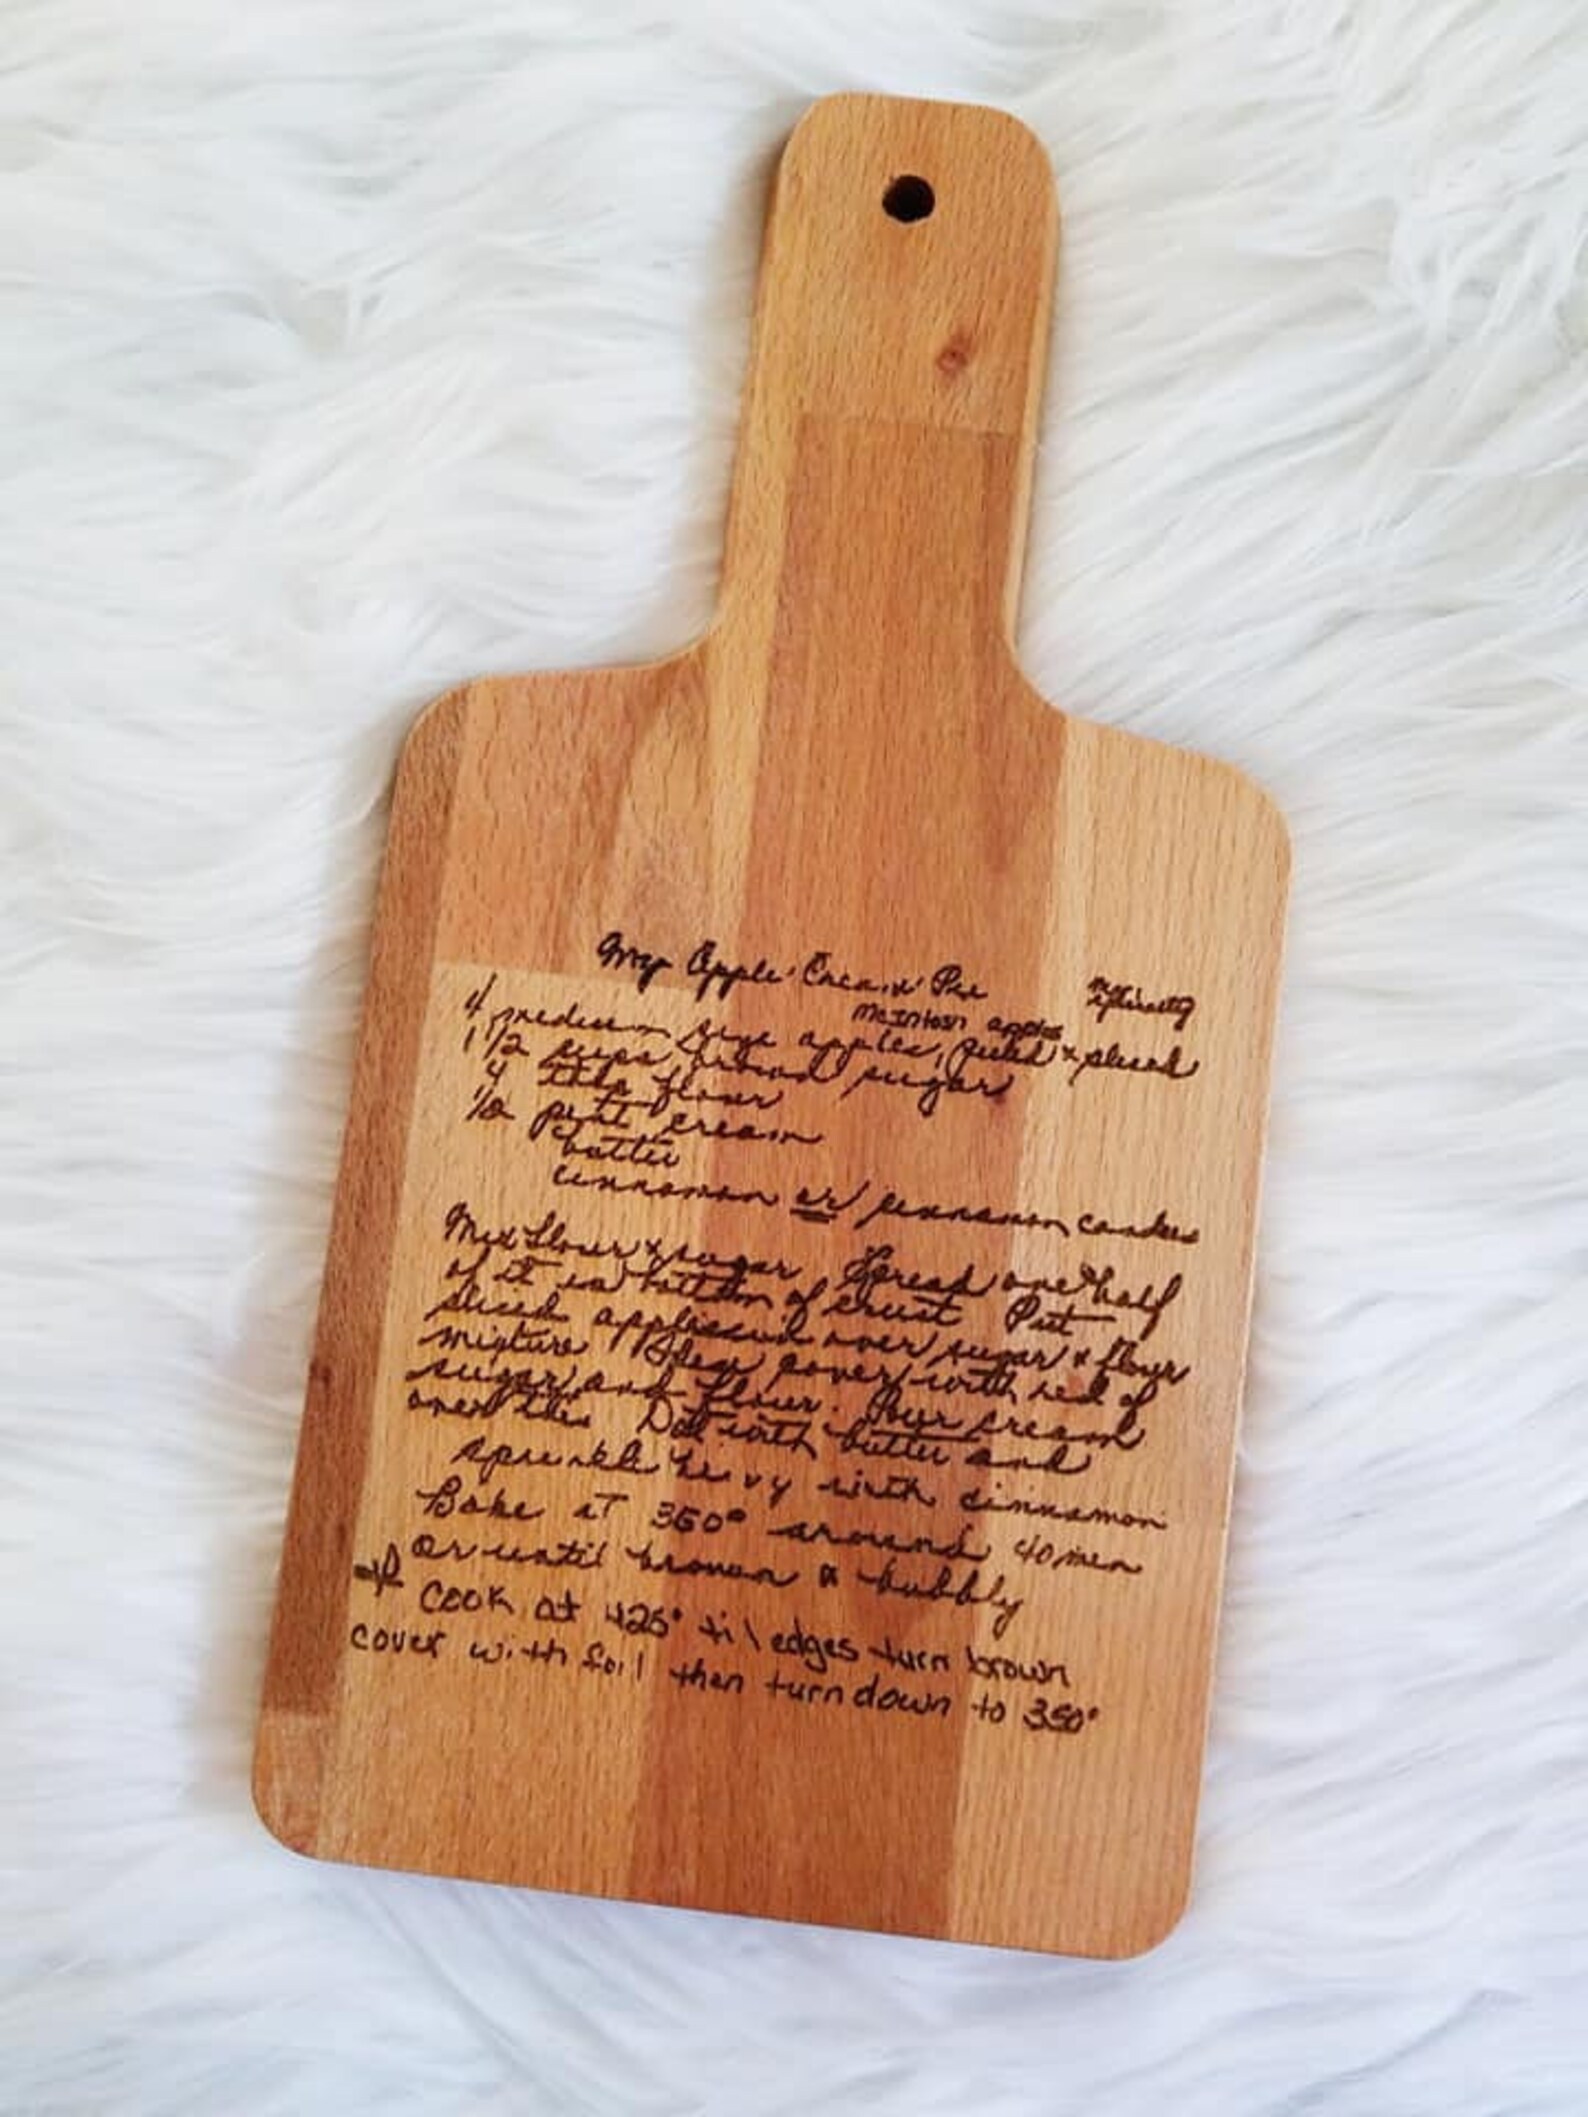 Apple Cream Pie my specialty
McIntosh apples
4 medium size apples, peeled & sliced
1 1/2 cups brown sugar
4 tbsp flour
1/2 pint cream
butter
cinnamon or cinnamon candies
Mix flour & sugar Spread one half
of it in bottom of crust Put
sliced apples over sugar & flour
mixture Then cover with rest of
sugar and flour. Pour cream
over this Dot with butter and
sprinkle heavy with cinnamon
Bake at 350° around 40 min
or until brown & bubbly
cook at 425° til edges turn brown
cover with foil then turn down to 350°